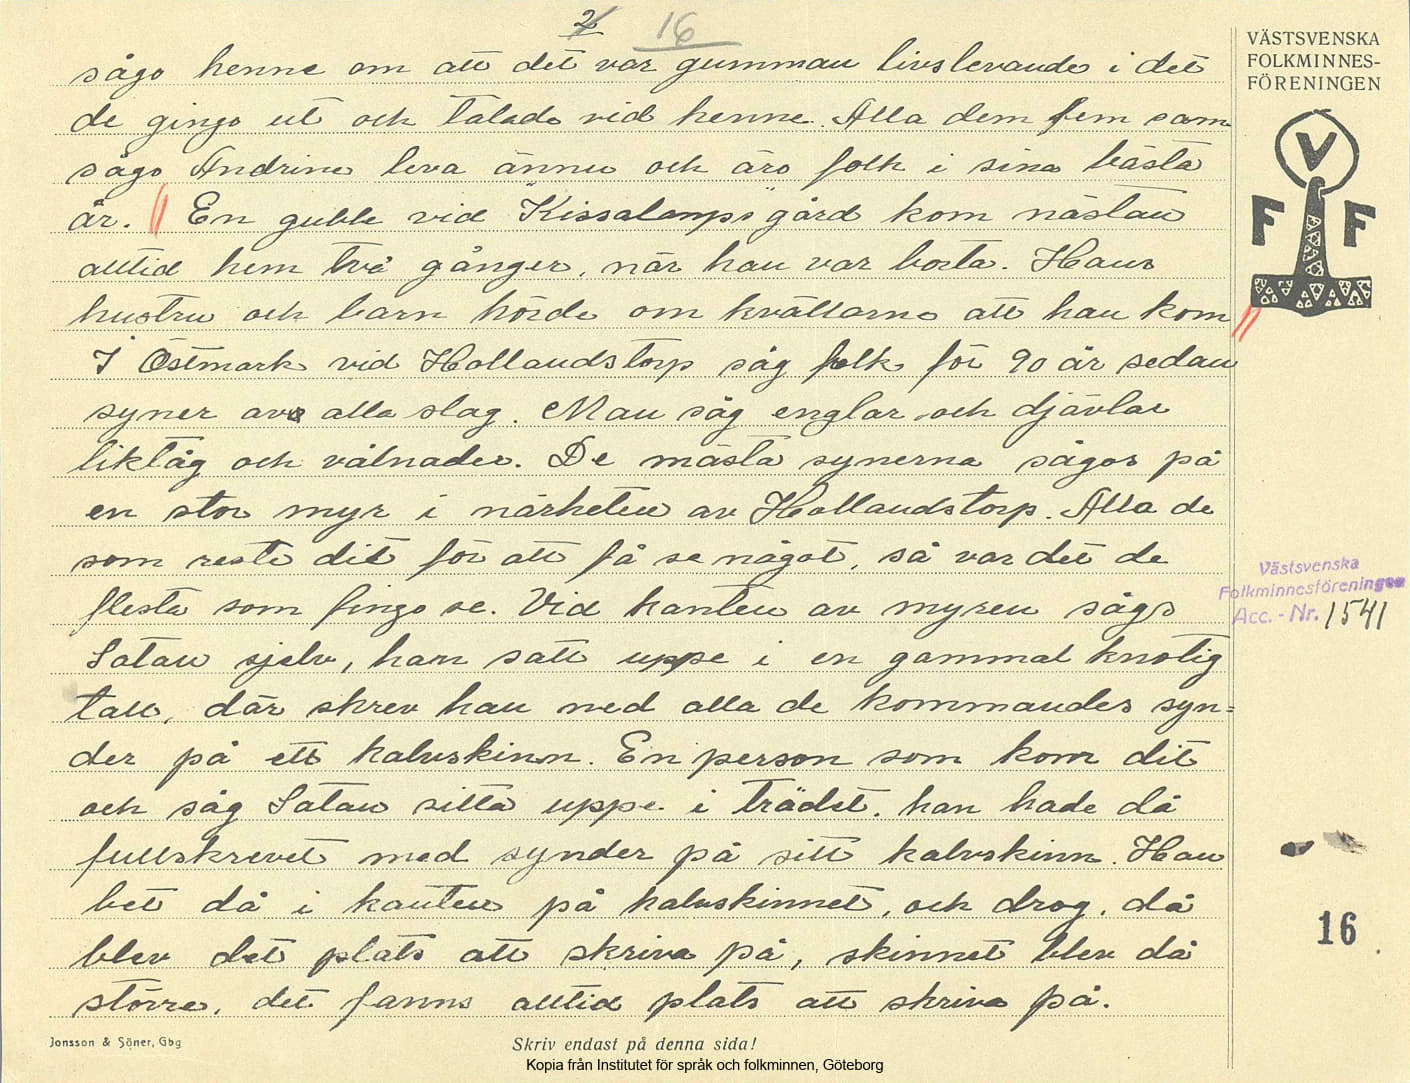 2 16
VÄSTSVENSKA
FOLKMINNES-
FÖRENINGEN
V
F F
sågo henne om att det var gumman livslevande i det
de gingo ut och talade vid henne. Alla dem fem som
sågo Andrine leva ännu och äro folk i sina bästa
år. En gubbe vid "Kissalamps" gård kom nästan
alltid hem två gånger, när han var borta. Hans
hustru och barn hörde om kvällarna att han kom
I Östmark vid Hollandstorp såg folk för 90 år sedan
syner av alla slag. Man såg englar och djävlar
liktåg och vålnader. De mästa synerna sågos på
en stor myr i närheten av Hollandstorp. Alla de
som reste dit för att få se något, så var det de
flesta som fingo se. Vid kanten av myren sågs
Satan sjelv, han satt uppe i en gammal knotig
tall, där skrev han ned alla de kommandes syn=
der på ett kalvskinn. En person som kom dit
och såg Satan sitta uppe i trädet, han hade då
fullskrevet med synder på sitt kalvskinn. Han
bet då i kanten på kalvskinnet, och drog, då
blev det plats att skriva på, skinnet blev då
större, det fanns alltid plats att skriva på.
Västsvenska
Folkminnesföreningen
Acc.-Nr. 1541
16
Jonsson & Söner, Gbg
Skriv endast på denna sida!
Kopia från Institutet för språk och folkminnen, Göteborg